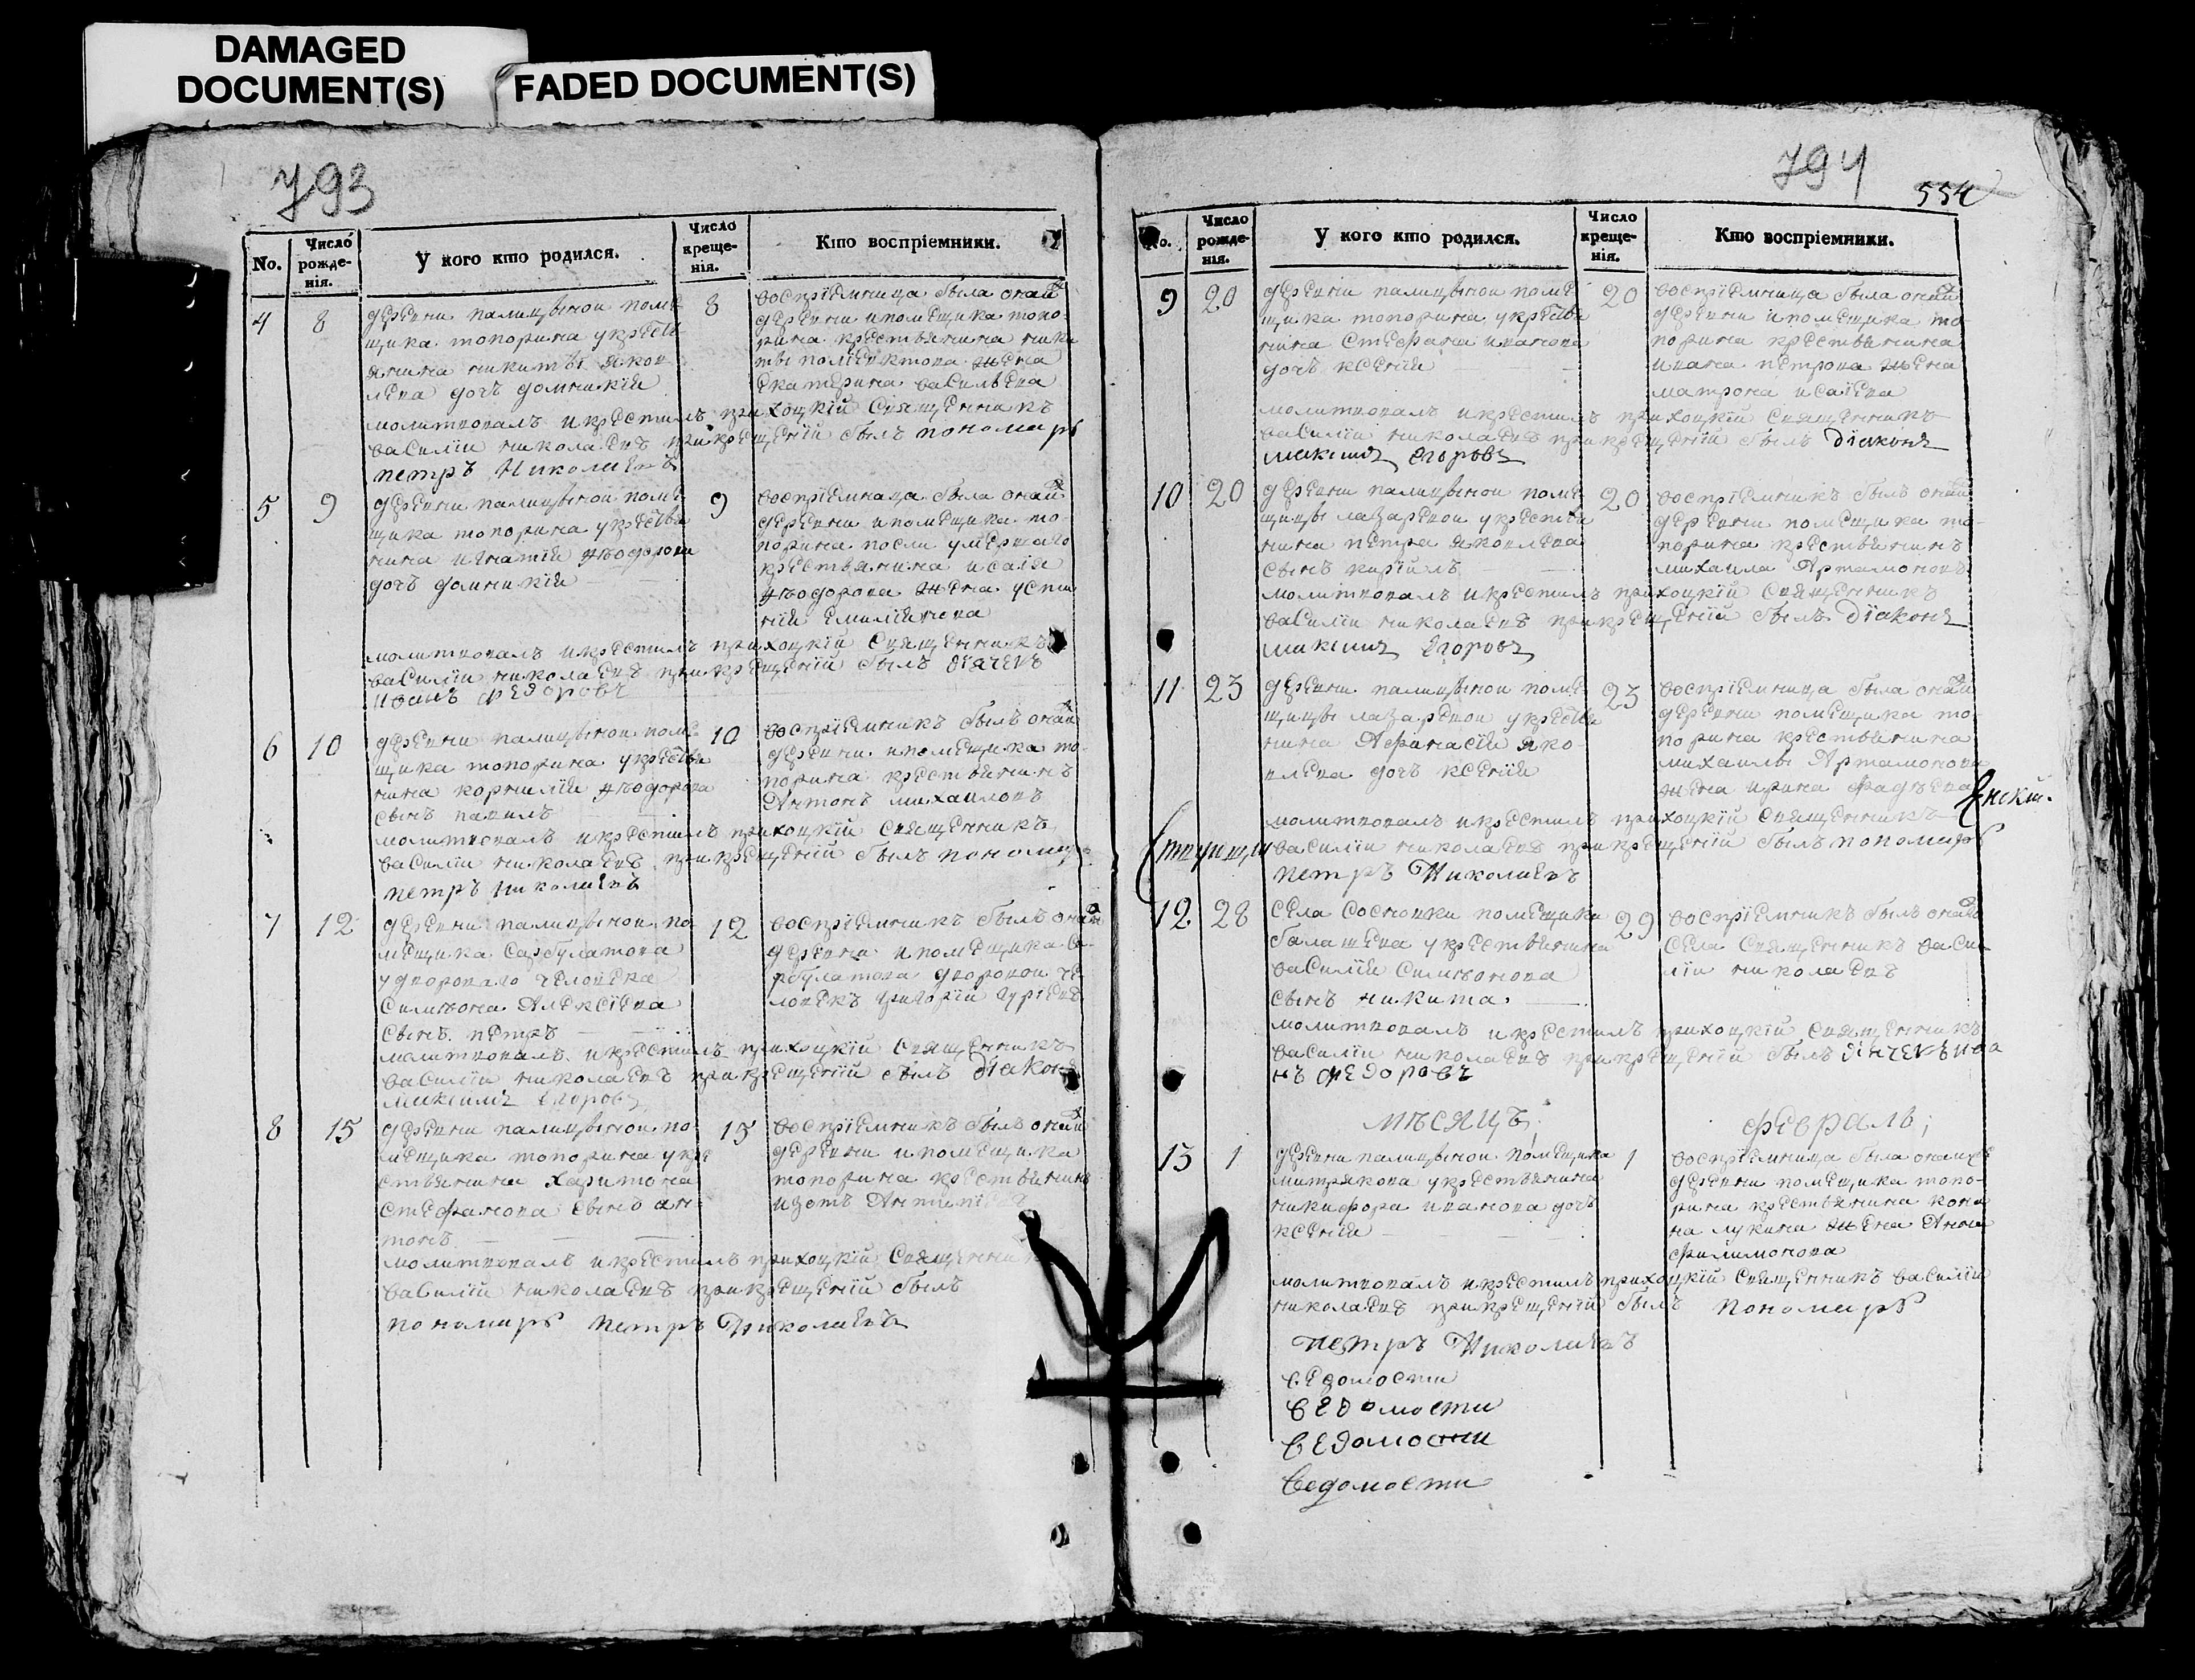 DAMAGED
DOCUMENT(S)
FADED DOCUMENT(S)
793
No.
Число рожденія.
У кого кто родился.
Число крещенія.
Кто воспріемники.
4 8
деревни палицыной поме
щика топорина укрестья
янина никиты яков
лева дочь домникий
8
воспріемница была оной
деревни ипомещика топо
рина крестьянина ники
ты полиектова жена
екатерина васильева
молитвовалъ икрестилъ приходцкій священникъ
василіи николаевъ прикрещеній былъ пономарь
петръ Николаевъ
5 9
деревни палицыной поме
щика топорина укрестья
нина игнатий фіодорова
дочь домникий
9
воспріемница была оной
деревни ипомещика то
порина посли умершаго
крестьянина исаія
фіодорова жена усти
ній емилиянова
молитвовалъ икрестилъ приходцкій священникъ
василіи николаевъ прикрещеній былъ дячекъ
иванъ федоровъ
6 10
деревни палицыной поме
щика топорина укрестья
нина корнилій фіодорова
сынъ павилъ
10
воспріемникъ былъ оной
деревни ипомещика то
порина крестьянинъ
Антонъ михаиловъ
молитвовалъ икрестилъ приходцкій священникъ
василіи николаевъ прикрещеній былъ пономарь
петръ николаевъ
7 12
деревни палицыной по
мещика сарбулатова
удвороваго человека
симиона Алексіева
сынъ петръ
12
воспріемникъ былъ оной
деревни ипомещика са
рбулатова дворовой че
ловекъ григорій гуріевъ
молитвовалъ икрестилъ приходцкій священникъ
василіи николаевъ прикрещеній былъ діаконъ
максимъ егоровъ
8 15
деревни палицыной по
мещика топорина укре
стьянина харитона
стефанова сынъ ан
тонъ
15
воспріемникъ былъ оной
деревни ипомещика
топорина крестьянинъ
изотъ
молитвовалъ икрестилъ приходцкій
василій николаевъ прикрещеній былъ
пономарь петръ Николаевъ
794
554
No.
Число рожденія.
У кого кто родился.
Число крещенія.
Кто воспріемники.
9 20
деревни палицыной поме
щика топорина укрестья
нина стефана иванова
дочь ксения
20
воспріемница была оной
деревни ипомещика то
порина крестьянина
ивана петрова жена
матрона исаіева
молитвовалъ икрестилъ приходцкій священникъ
василіи николаевъ прикрещеній былъ діаконъ
максимъ егоровъ
10 20
деревни палицыной поме
щицы лазаревой укрестья
нина петра яковлева
сынъ кирилъ
20
воспріемникъ былъ оной
деревни помещика то
порина крестьянинъ
михаила Артамоновъ
молитвовалъ икрестилъ приходцкій священникъ
василіи николаевъ прикрещеній былъ діаконъ
максимъ егоровъ
11 23
деревни палицыной поме
щицы лазаревой укрестья
нина Афанасій яко
влева дочь ксений
23
воспріемница была оной
деревни помещика то
порина крестьянина
михаилы Артамонова
жена ирина фадъева
молитвовалъ икрестилъ приходцкій священникъ
василіи николаевъ прикрещеній былъ пономарь
петръ Николаевъ
12 28
села сосновки помещика
балашева укрестьянина
василий симионова
сынъ никита
29
воспріемникъ былъ оного
села священникъ васи
ліи николаевъ
молитвовалъ икрестилъ приходцкій священникъ
василіи николаевъ прикрещеній былъ дячекъ ива
нъ федоровъ
мѣсяцъ; февраль;
13 1
деревни палицыной помещика
митрякова укрестьянина
никифора иванова дочь
ксений
1
воспріемница была онаже
деревни помещика топо
рина крестьянина коно
на лукина жена Анна
филимонова
молитвовалъ икрестилъ приходцкій священникъ василіи
николаевъ прикрещеній былъ пономарь
петръ Николаевъ
ведомости
ведомости
ведомости
ведомости